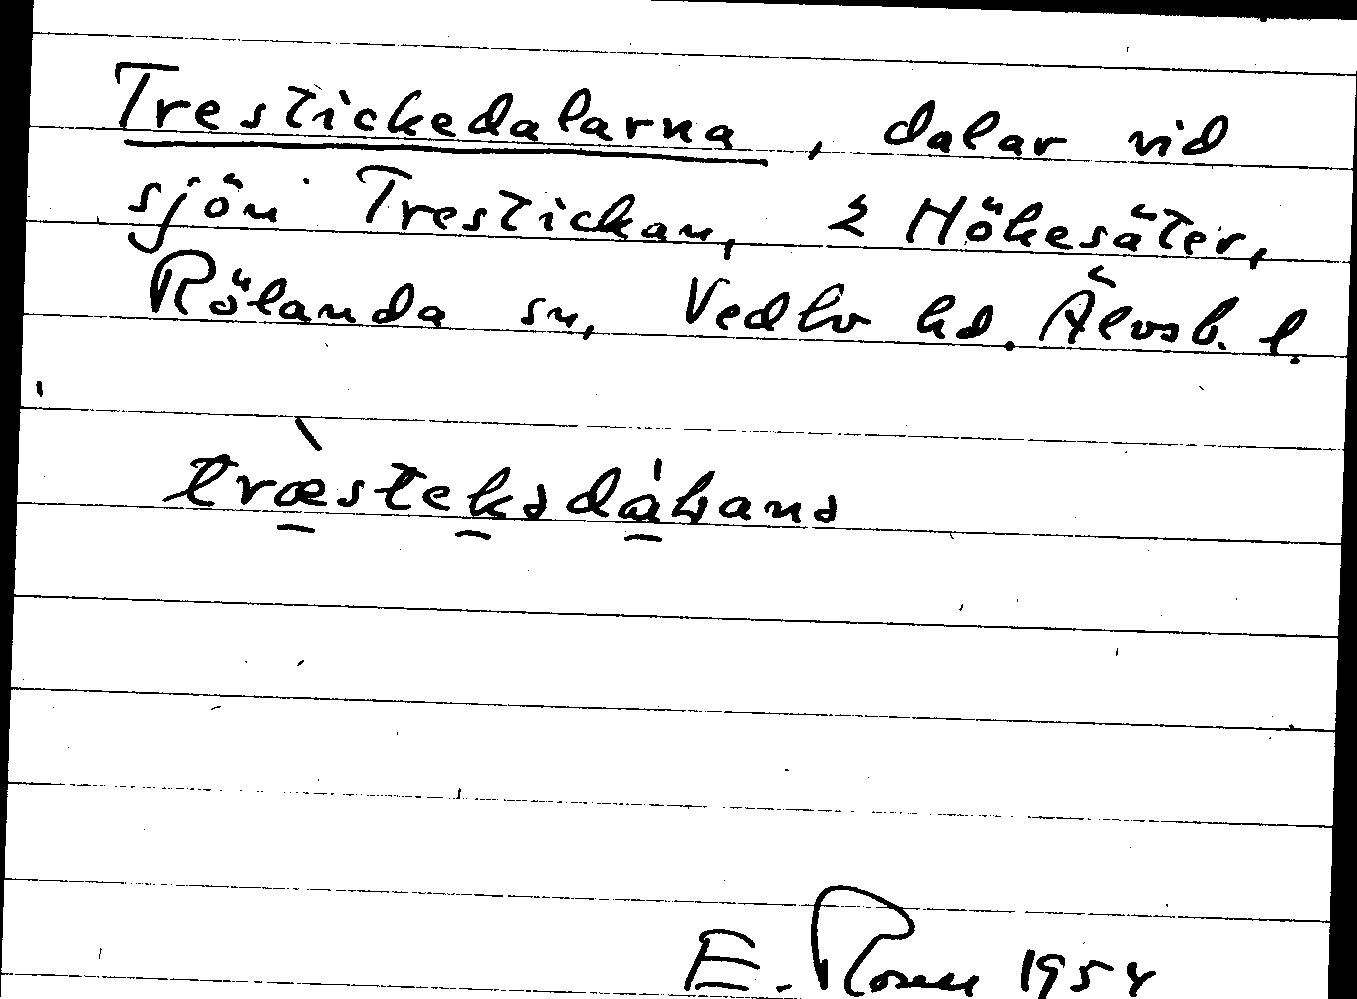 Trestickedalarna, dalar vid
sjön Trestickan, Hökesäter,
Rölanda sn, Vedbo hd. Älvsb. l.
E. Rosell 1954